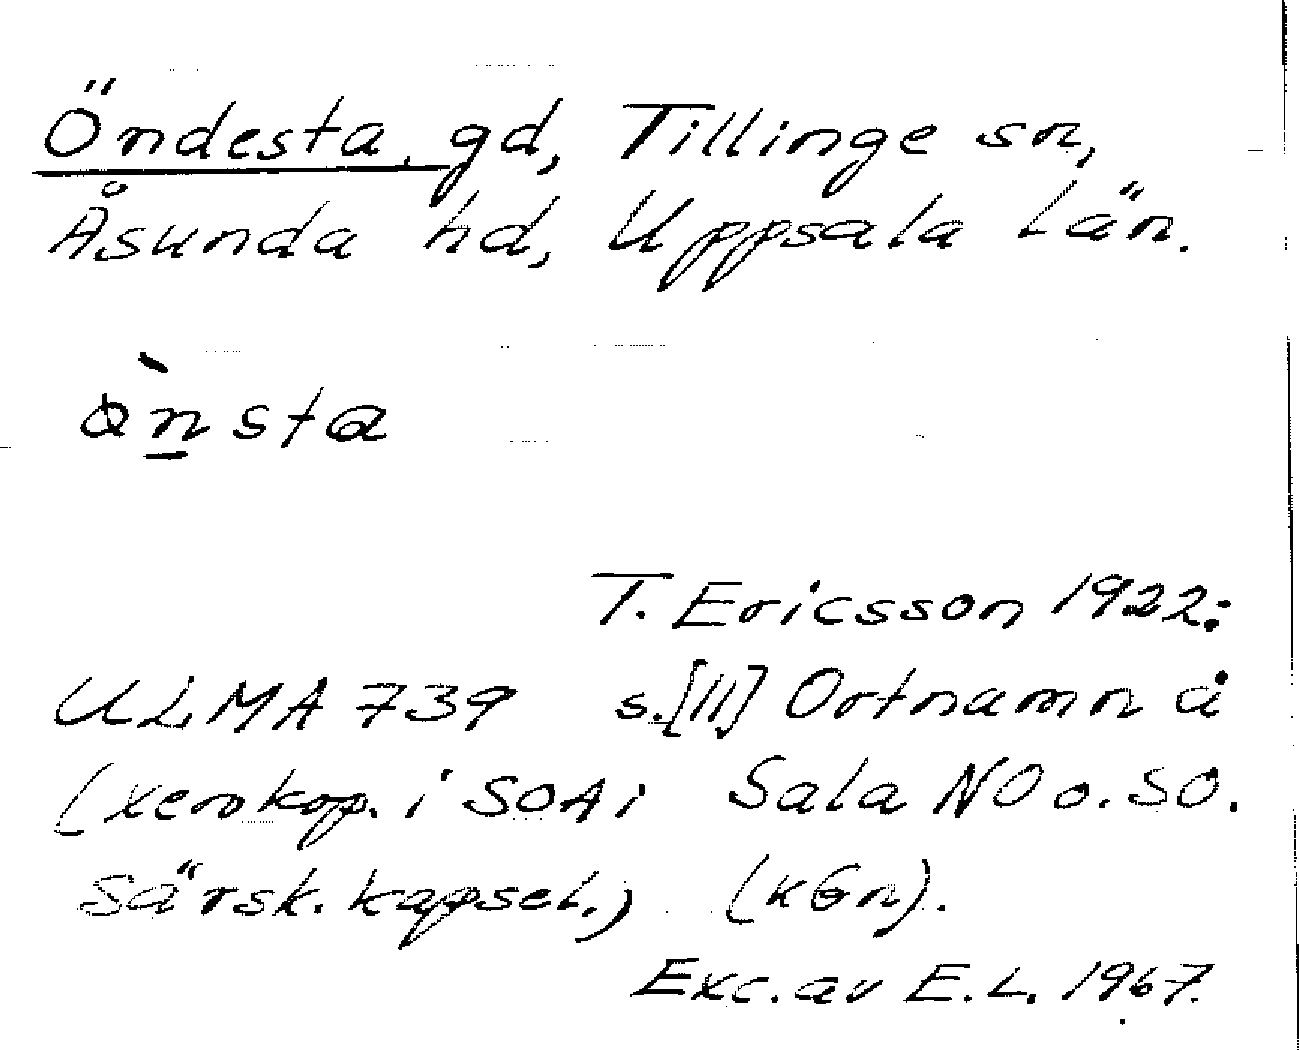 Öndesta, gd, Tillinge sn,
Åsunda hd, Uppsala län.
ö̀n̲sta
T. Ericsson 1922:
ULMA 739 s.[11] Ortnamn å
(xerokop. i SOA i Sala NO o. SO.
Särsk. kapsel.) (KGn).
Exc. av E.L. 1967.